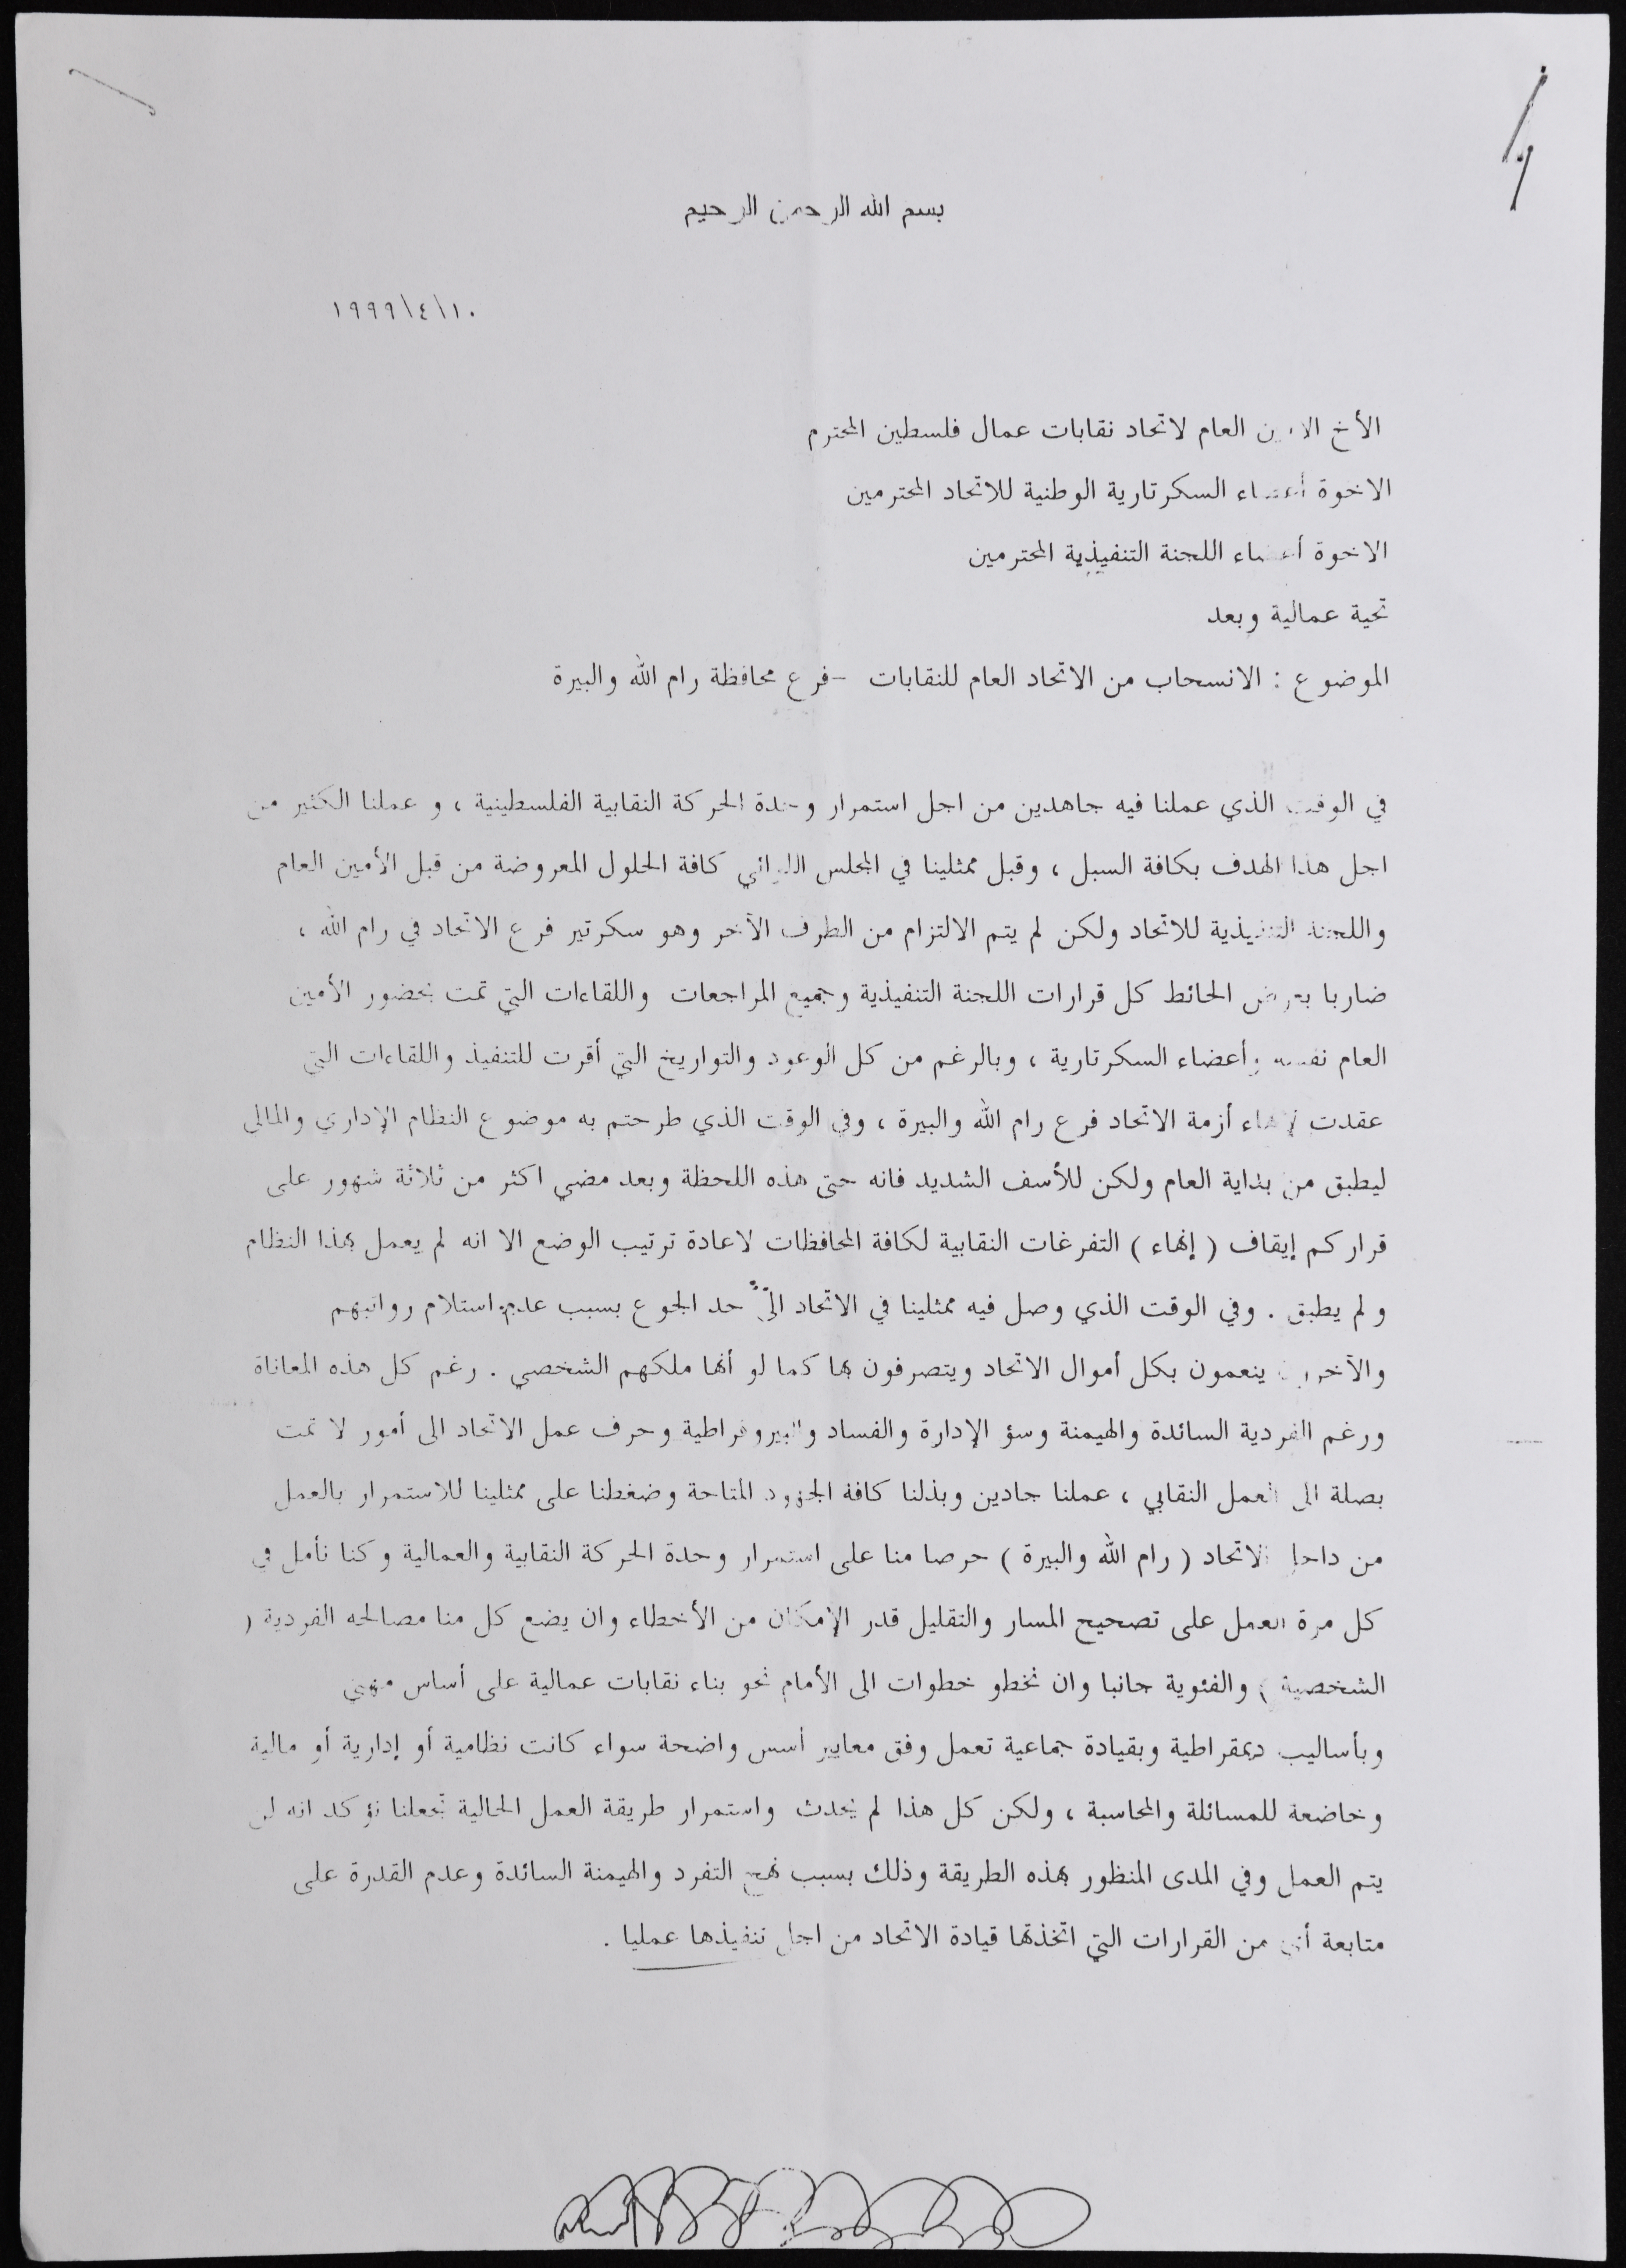 بسم الله الرحمن الرحيم
١٩٩٩/٤/١٠
الأخ الامين العام لاتحاد نقابات عمال فلسطين المحترم
الاخوة أعضاء السكرتارية الوطنية للاتحاد المحترمين
الاخوة أعضاء اللجنة التنفيذية المحترمين
تحية عمالية وبعد
الموضوع : الانسحاب من الاتحاد العام للنقابات -فرع محافظة رام الله والبيرة
في الوقت الذي عملنا فيه جاهدين من اجل استمرار وحدة الحركة النقابية الفلسطينية ، و عملنا الكثير من
اجل هذا الهدف بكافة السبل ، وقبل ممثلينا في المجلس اللوائي كافة الحلول المعروضة من قبل الأمين العام
واللجنة التنفيذية للاتحاد ولكن لم يتم الالتزام من الطرف الآخر وهو سكرتير فرع الاتحاد في رام الله ،
ضاربا بعرض الحائط كل قرارات اللجنة التنفيذية وجميع المراجعات واللقاءات التي تمت بحضور الأمين
العام نفسه وأعضاء السكرتارية ، وبالرغم من كل الوعود والتواريخ التي أقرت للتنفيذ واللقاءات التي
عقدت لإنهاء أزمة الاتحاد فرع رام الله والبيرة ، وفي الوقت الذي طرحتم به موضوع النظام الإداري والمالي
ليطبق من بداية العام ولكن للأسف الشديد فانه حتى هذه اللحظة وبعد مضي اكثر من ثلاثة شهور على
قراركم إيقاف ( إنهاء ) التفرغات النقابية لكافة المحافظات لاعادة ترتيب الوضع الا انه لم يعمل بهذا النظام
ولم يطبق . وفي الوقت الذي وصل فيه ممثلينا في الاتحاد الى حد الجوع بسبب عدم استلام رواتبهم
والآخرون ينعمون بكل أموال الاتحاد ويتصرفون بها كما لو أنها ملكهم الشخصي . رغم كل هذه المعاناة
ورغم الفردية السائدة والهيمنة وسؤ الإدارة والفساد والبيروقراطية وحرف عمل الاتحاد الى أمور لا تمت
بصلة الى العمل النقابي ، عملنا جادين وبذلنا كافة الجهود المتاحة وضغطنا على ممثلينا للاستمرار بالعمل
من داخل الاتحاد ( رام الله والبيرة ) حرصا منا على استمرار وحدة الحركة النقابية والعمالية وكنا نأمل في
كل مرة العمل على تصحيح المسار والتقليل قدر الإمكان من الأخطاء وان يضع كل منا مصالحه الفردية (
الشخصية ) والفئوية جانبا وان نخطو خطوات الى الأمام نحو بناء نقابات عمالية على أساس مهني
وبأساليب ديمقراطية وبقيادة جماعية تعمل وفق معايير أسس واضحة سواء كانت نظامية أو إدارية أو مالية
وخاضعة للمسائلة والمحاسبة ، ولكن كل هذا لم يحدث واستمرار طريقة العمل الحالية تجعلنا نؤكد انه لن
يتم العمل وفي المدى المنظور بهذه الطريقة وذلك بسبب نهج التفرد والهيمنة السائدة وعدم القدرة على
متابعة أي من القرارات التي اتخذتها قيادة الاتحاد من اجل تنفيذها عمليا .